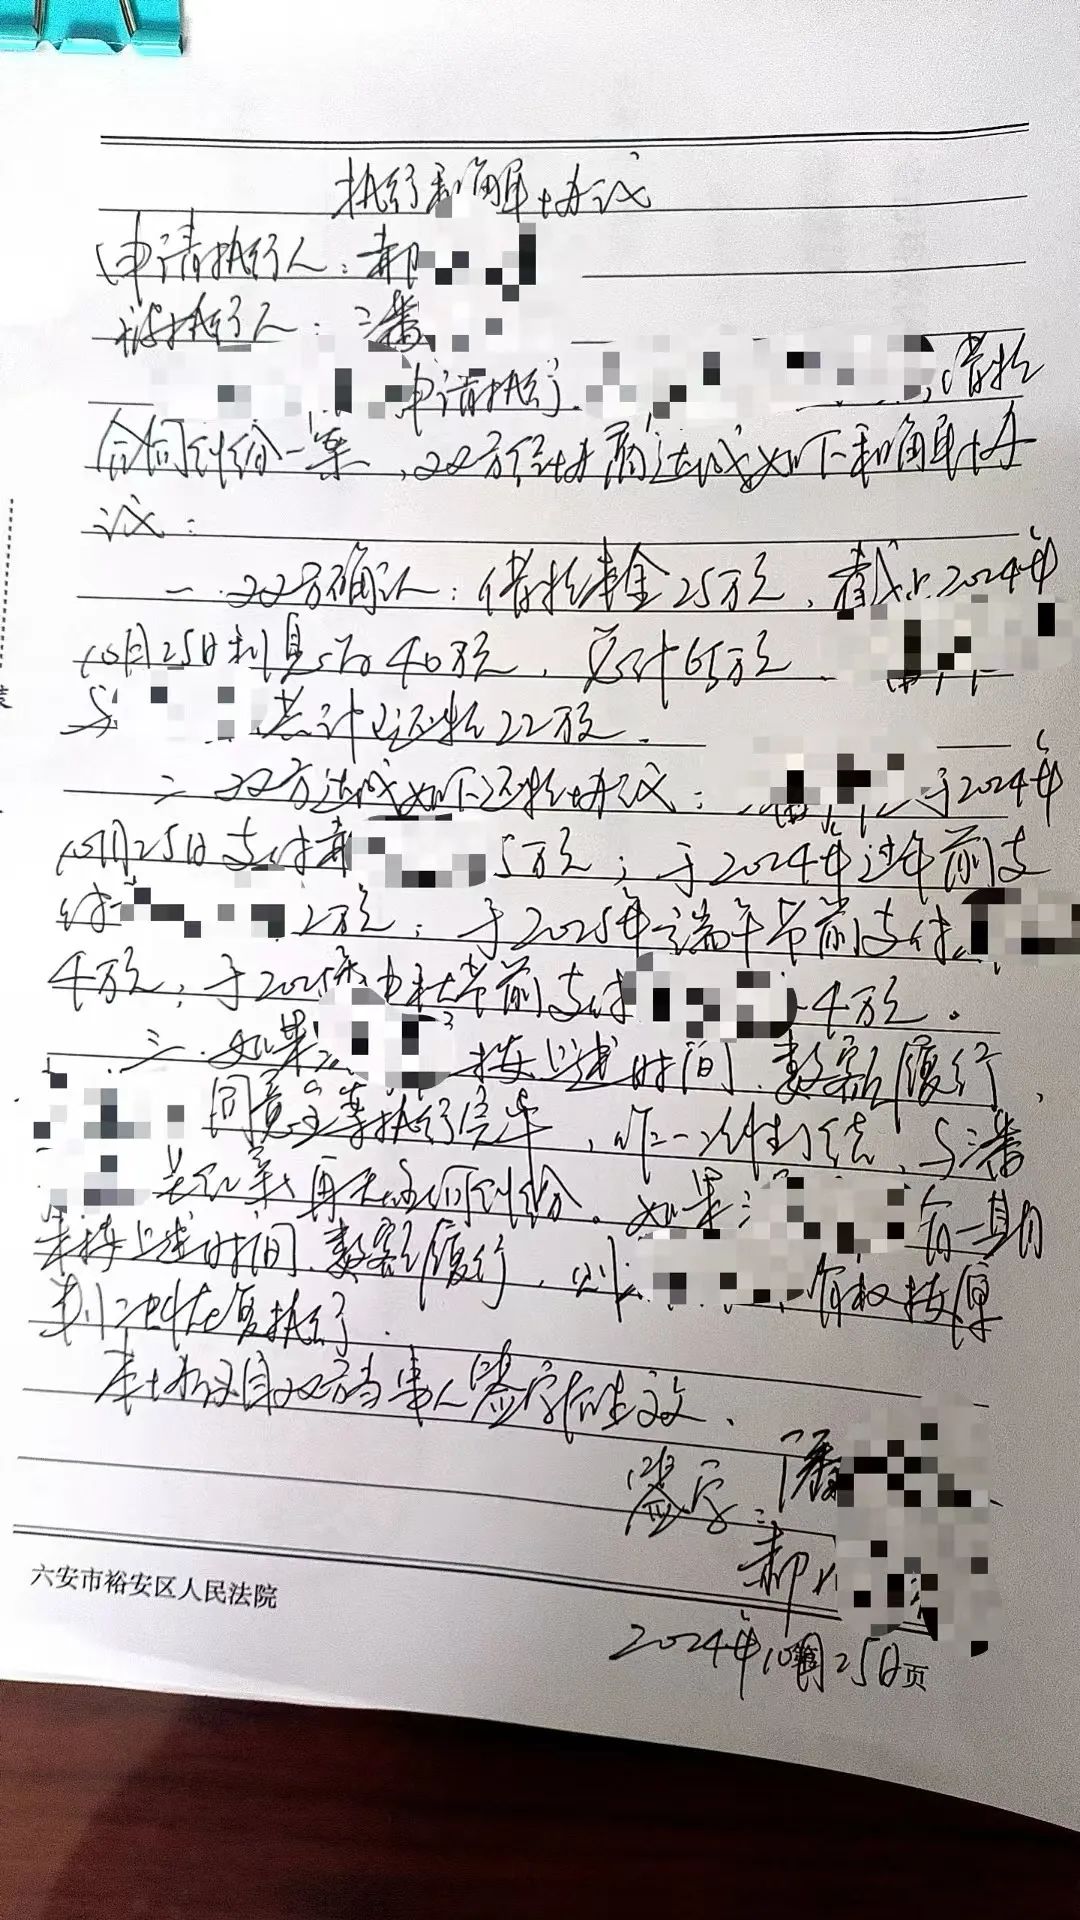 执行和解协议
申请执行人：郝
被执行人：潘
申请执行 ，借款
合同纠纷一案，双方经协商达成如下和解协
议：
一、双方确认：借款本金25万元，截止2024年
10月25日利息为40万元，总计65万元
与 共计还款22万元．
二、双方达成如下还款协议： 于2024年
10月25日支付郝 5万元；于2024年过年前支
付 2万元；于2025年端午节前支付
4万元；于2025年中秋节前支付 4万元。
三、如果 按上述时间、数额履行，
同意全案执行完毕，作一次性了结，与潘
再无任何纠纷。如果 有一期
未按上述时间、数额履行，则 有权按原
判决书恢复执行．
本协议自双方当事人签字后生效．
签字：潘
郝
六安市裕安区人民法院
2024年10月25日 页